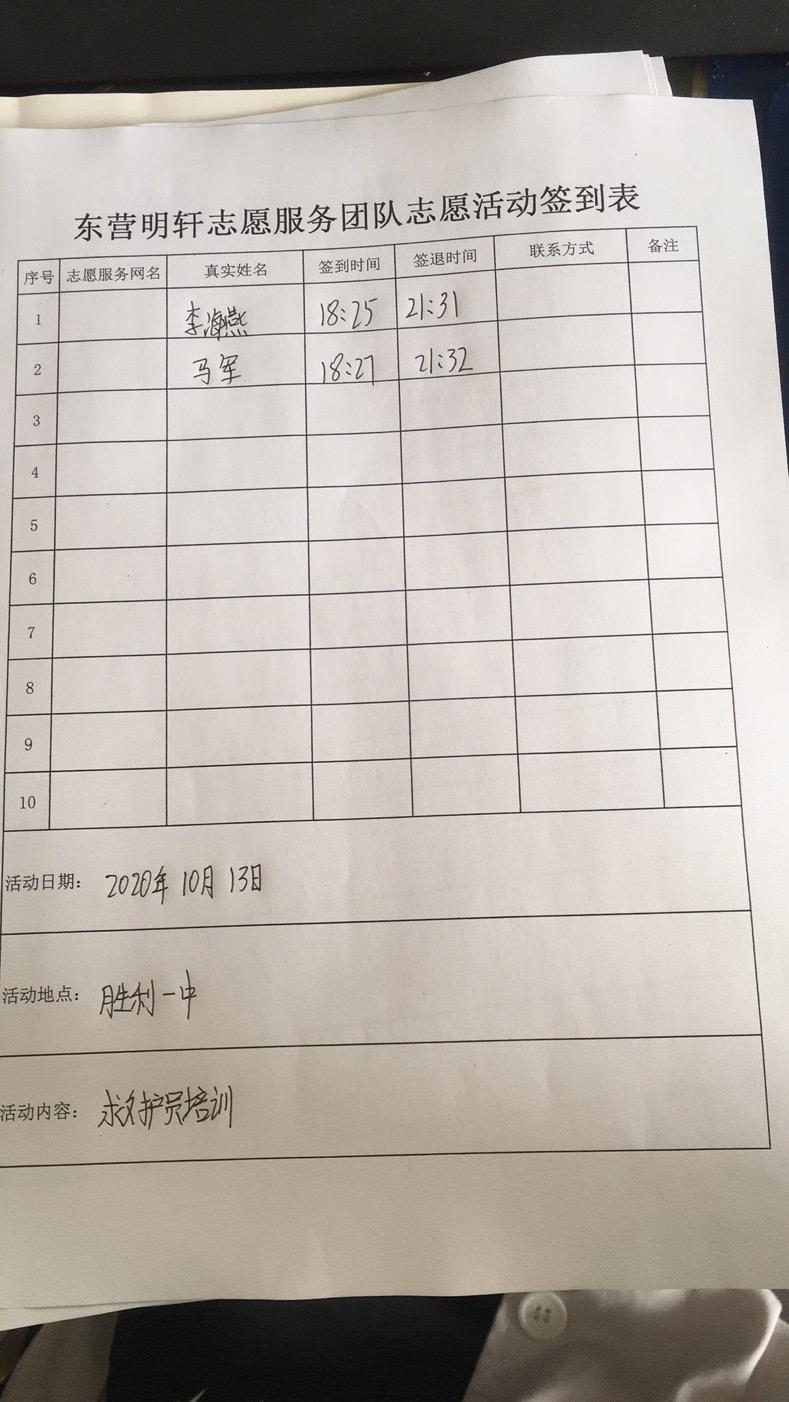 东营明轩志愿服务团队志愿活动签到表
序号 志愿服务网名 真实姓名 签到时间 签退时间 联系方式 备注
1 李海燕 18:25 21:31
2 马军 18:27 21:32
3
4
5
6
7
8
9
10
活动日期: 2020年10月13日
活动地点: 胜利一中
活动内容: 救护员培训